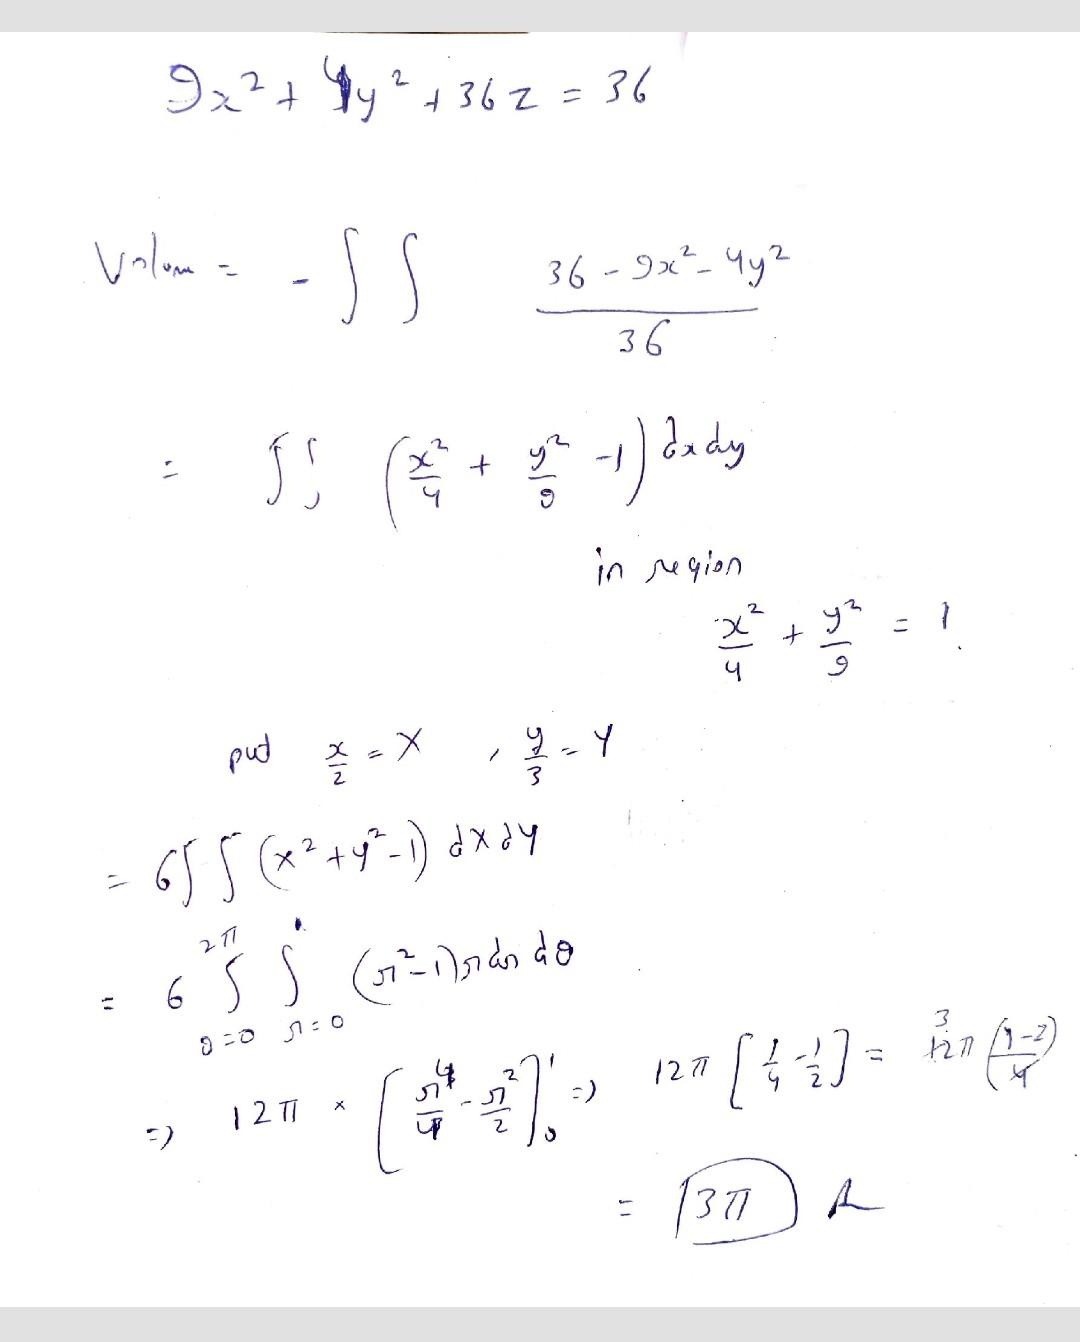 9x² + 4y² + 36z = 36
Volum = - ∫ ∫ (36 - 9x² - 4y²)/36
= ∫ ∫ (x²/4 + y²/9 - 1) dx dy
in region
x²/4 + y²/9 = 1.
put x/2 = X , y/3 = Y
= 6 ∫ ∫ (x² + y² - 1) dX dY
= 6 ∫_{θ=0}^{2π} ∫_{r=0}^{1} (r² - 1) r dr dθ
=) 12π × [r⁴/4 - r²/2]₀¹ =) 12π [1/4 - 1/2] = 3 12π (1-2)/4
= 3π